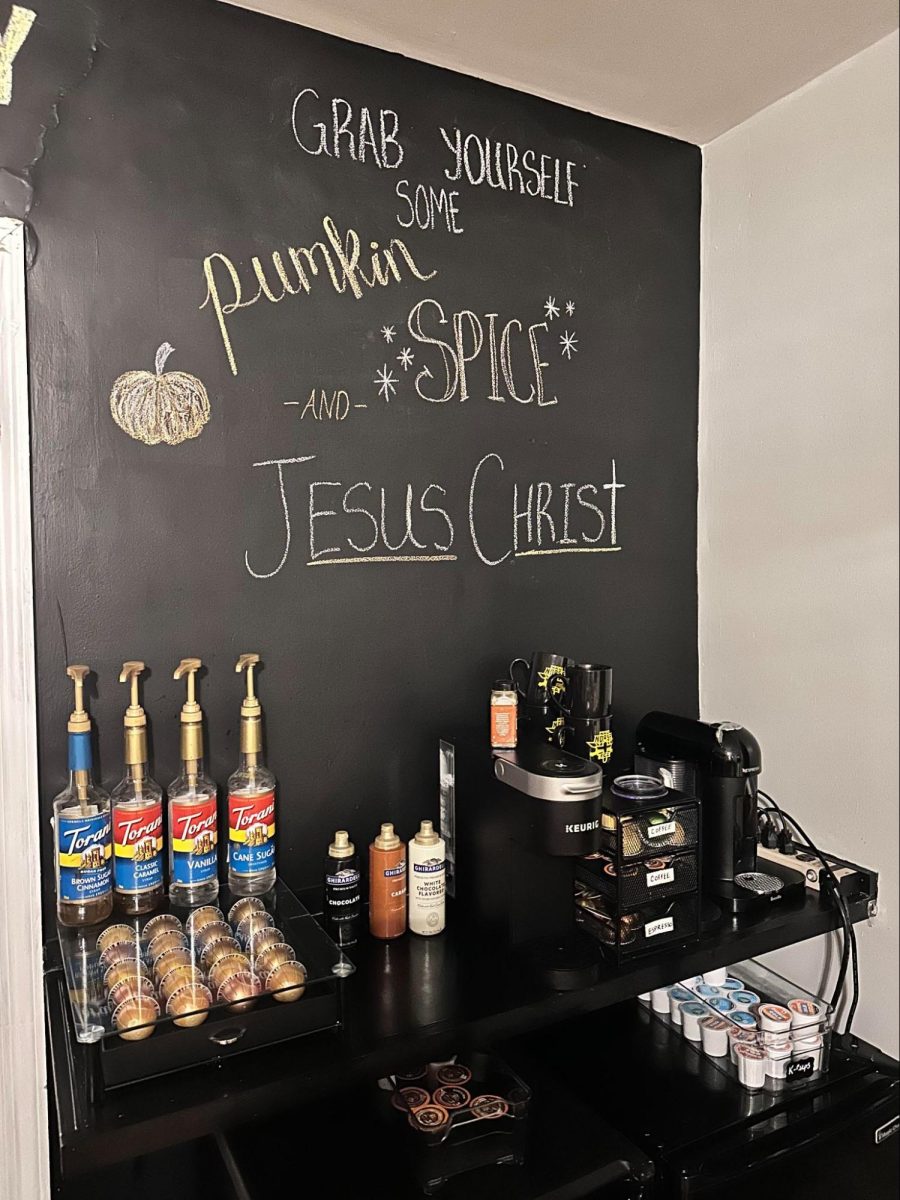 Y
GRAB YOURSELF
SOME
pumpkin
SPICE
-AND-
JESUS CHRIST
Torani
BROWN SUGAR
CINNAMON
Torani
CLASSIC
CARAMEL
Torani
VANILLA
Torani
CANE SUGAR
GHIRARDELLI
CHOCOLATE
GHIRARDELLI
GHIRARDELLI
WHITE
CHOCOLATE
FLAVORED
KEURIG
COFFEE
COFFEE
ESPRESSO
K-Cups